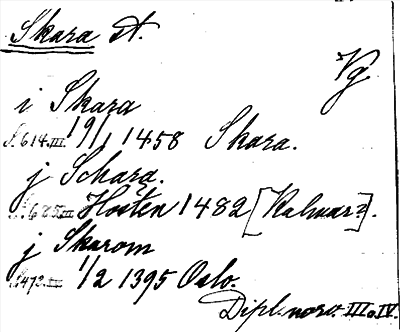 Skara st.
Vg
i Skara
S. 614.III. 19/1 1458 Skara.
j Schara.
S. 685.III Hösten 1482 [Kalmar?].
j Skarom
S. 472.III 1/2 1395 Oslo.
Dipl. norv. III o. IV.